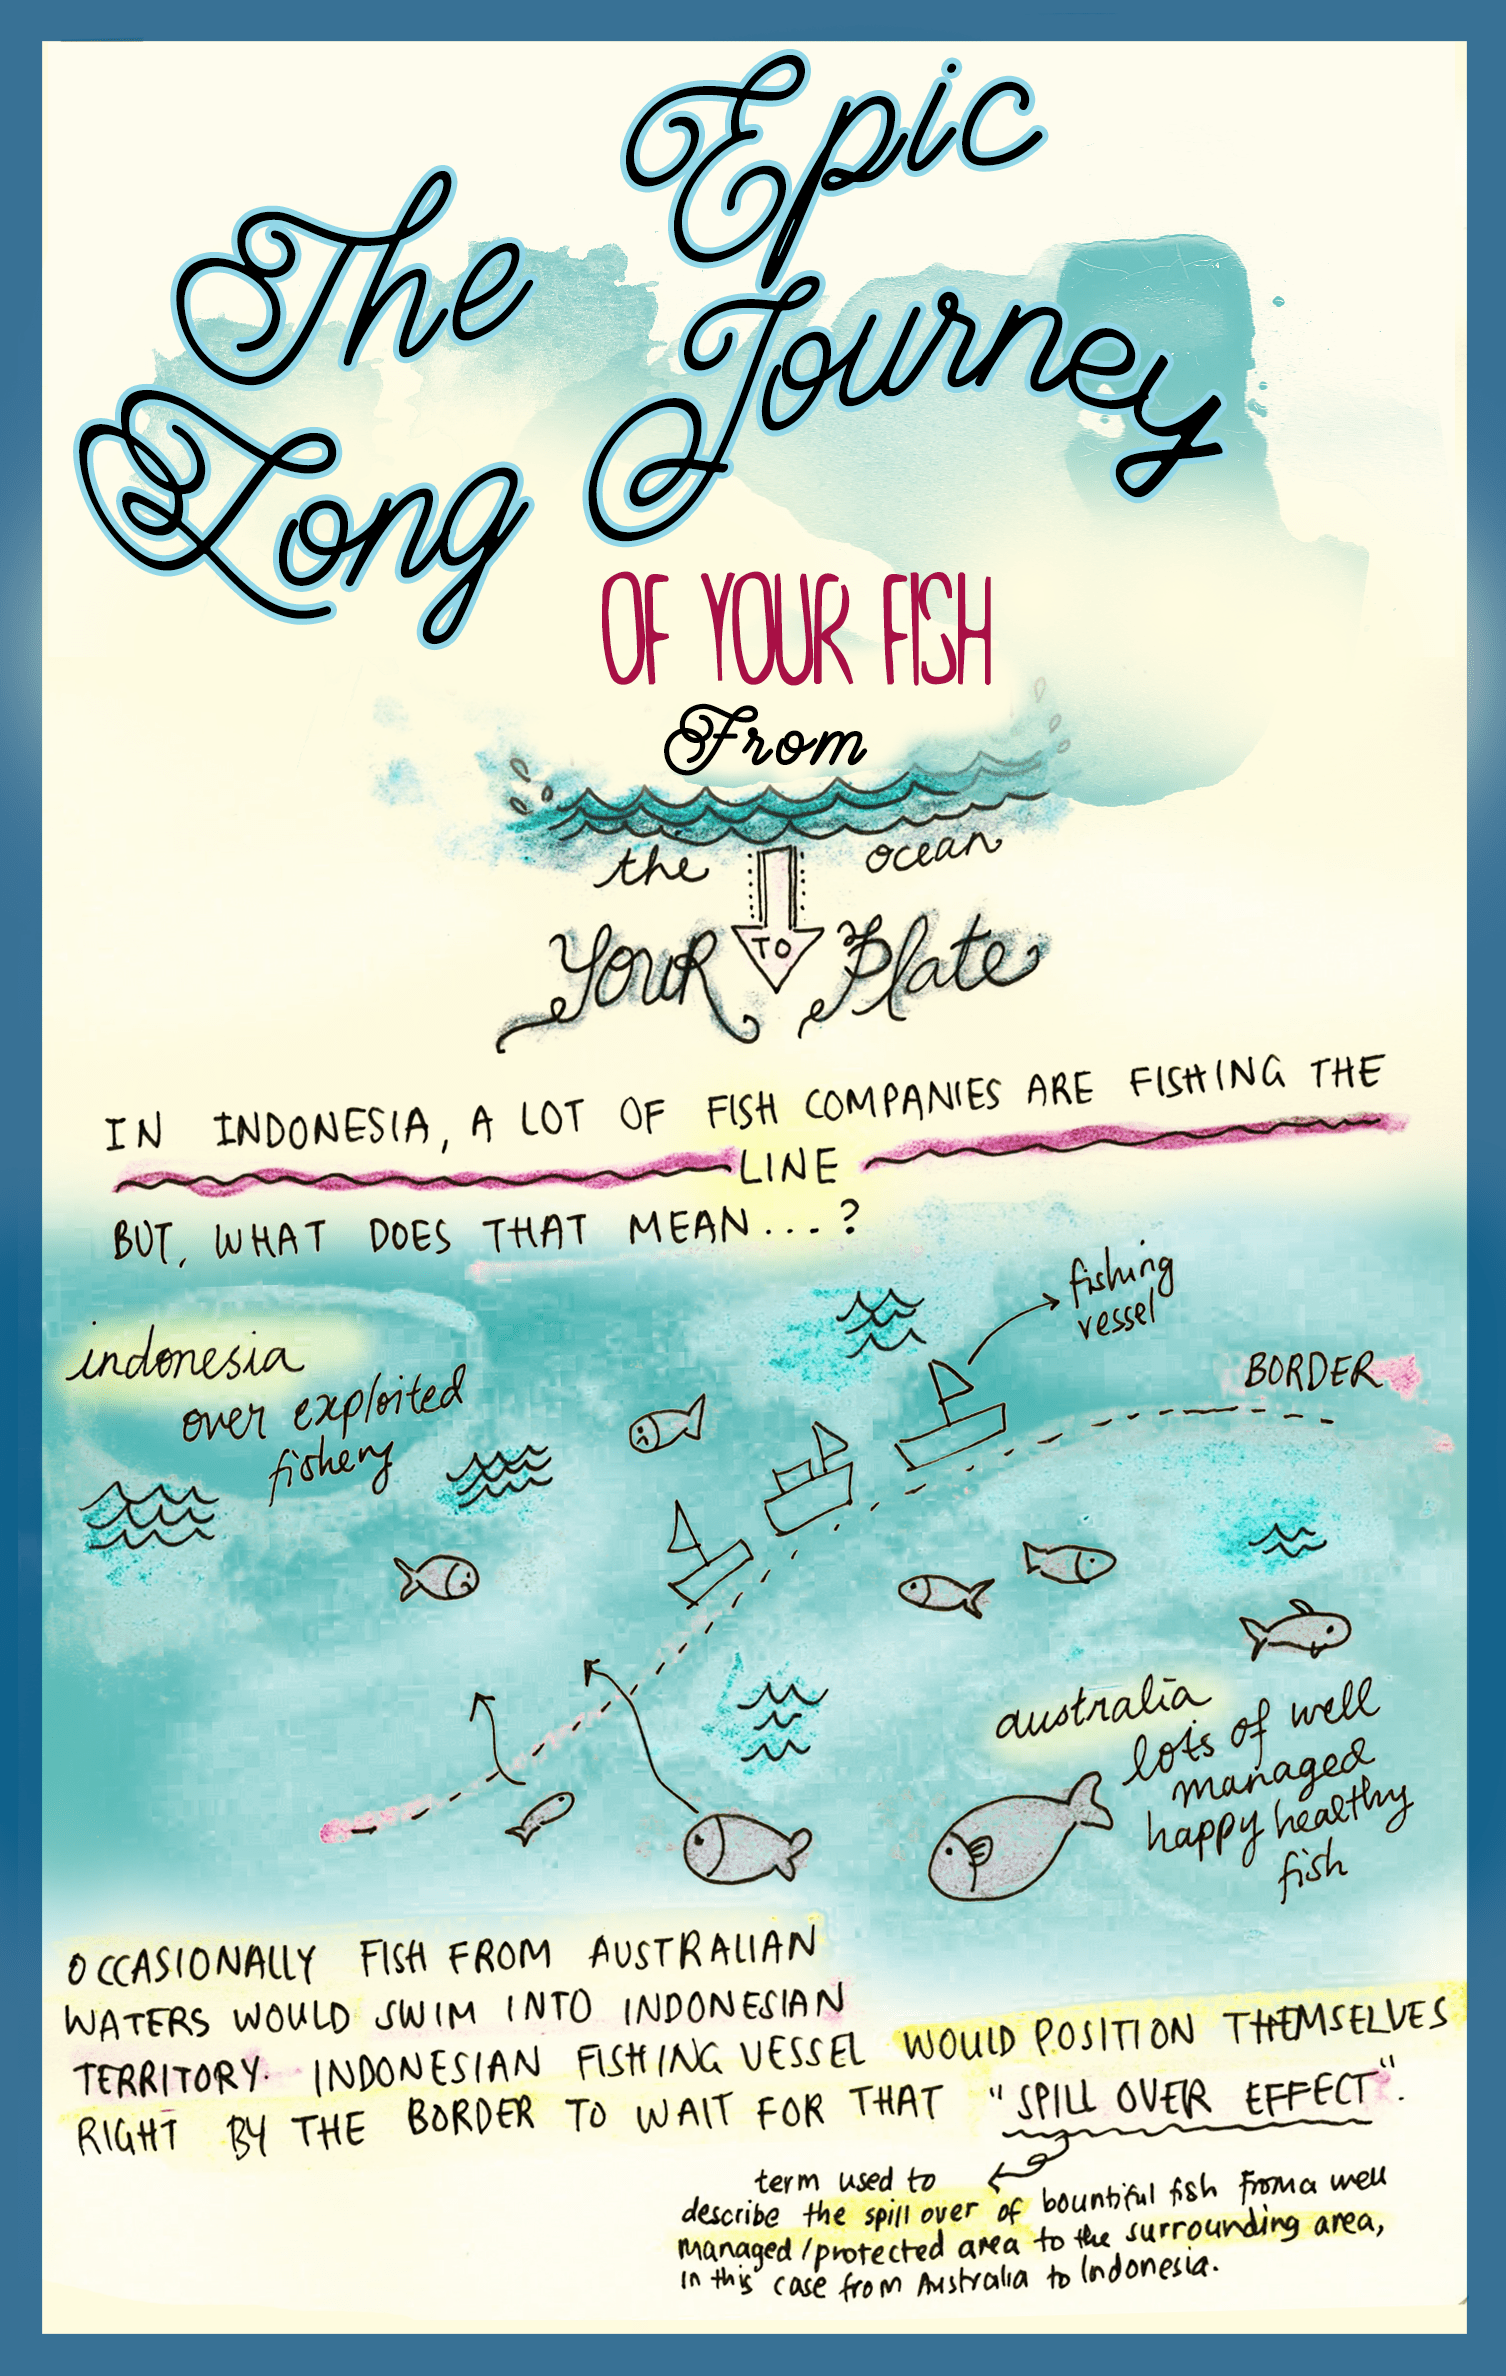 The Epic
Long Journey
OF YOUR FISH
From
the ocean
TO
YOUR Plate
IN INDONESIA, A LOT OF FISH COMPANIES ARE FISHING THE
LINE
BUT, WHAT DOES THAT MEAN...?
fishing
vessel
BORDER
indonesia
over exploited
fishery
australia
lots of well
managed
happy healthy
fish
OCCASIONALLY FISH FROM AUSTRALIAN
WATERS WOULD SWIM INTO INDONESIAN
TERRITORY. INDONESIAN FISHING VESSEL WOULD POSITION THEMSELVES
RIGHT BY THE BORDER TO WAIT FOR THAT "SPILL OVER EFFECT".
term used to
describe the spill over of bountiful fish from a well
managed/protected area to the surrounding area,
in this case from Australia to Indonesia.